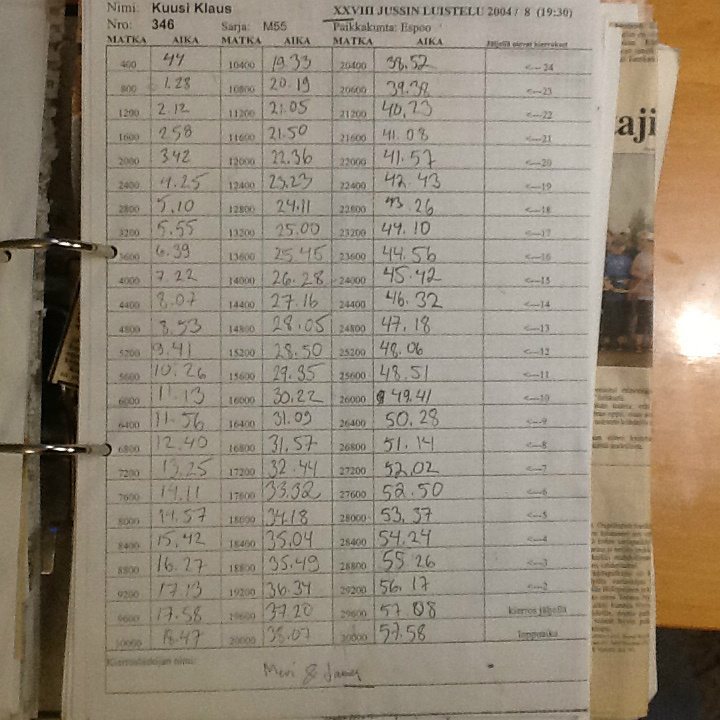 Nimi: Kuusi Klaus XXVIII JUSSIN LUISTELU 2004 / 8 (19:30)
Nro: 346 Sarja: M55 Paikkakunta: Espoo
MATKA AIKA MATKA AIKA MATKA AIKA Jäljellä olevat kierrokset
400 44 10400 19.33 20400 38.52 <---24
800 1.28 10800 20.19 20800 39.38 <---23
1200 2.12 11200 21.05 21200 40.23 <---22
1600 2.58 11600 21.50 21600 41.08 <---21
2000 3.42 12000 22.36 22000 41.57 <---20
2400 4.25 12400 23.23 22400 42.43 <---19
2800 5.10 12800 24.11 22800 43.26 <---18
3200 5.55 13200 25.00 23200 44.10 <---17
3600 6.39 13600 25.45 23600 44.56 <---16
4000 7.22 14000 26.28 24000 45.42 <---15
4400 8.07 14400 27.16 24400 46.32 <---14
4800 8.53 14800 28.05 24800 47.18 <---13
5200 9.41 15200 28.50 25200 48.06 <---12
5600 10.26 15600 29.35 25600 48.51 <---11
6000 11.13 16000 30.22 26000 49.41 <---10
6400 11.56 16400 31.09 26400 50.28 <---9
6800 12.40 16800 31.57 26800 51.14 <---8
7200 13.25 17200 32.44 27200 52.02 <---7
7600 14.11 17600 33.32 27600 52.50 <---6
8000 14.57 18000 34.18 28000 53.37 <---5
8400 15.42 18400 35.04 28400 54.24 <---4
8800 16.27 18800 35.49 28800 55.26 <---3
9200 17.13 19200 36.34 29200 56.17 <---2
9600 17.58 19600 37.20 29600 57.08 kierros jäljellä
10000 18.47 20000 38.07 30000 57.58 loppuaika
Kierroslaskijan nimi:
aji